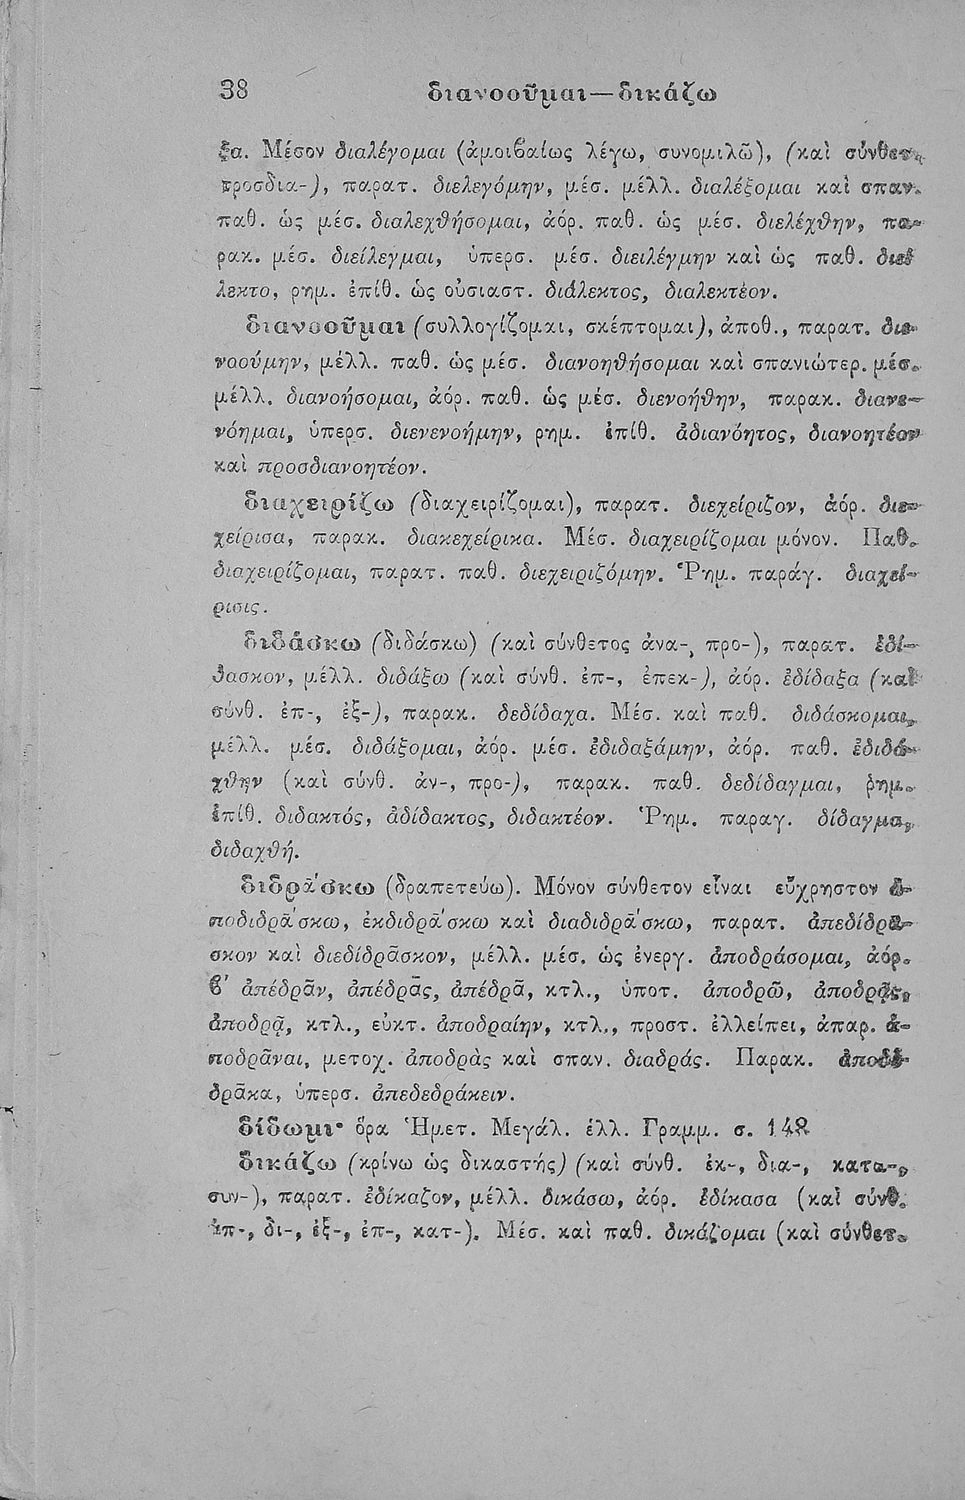 38 διανοοῦμαι—δικάζω
ξα. Μέσον διαλέγομαι (ἀμοιβαίως λέγω, συνομιλῶ), (καὶ σύνθετ.
προσδια-), παρατ. διελεγόμην, μέσ. μέλλ. διαλέξομαι καὶ σπαν.
παθ. ὡς μέσ. διαλεχθήσομαι, ἀόρ. παθ. ὡς μέσ. διελέχθην, πα-
ρακ. μέσ. διείλεγμαι, ὑπερσ. μέσ. διειλέγμην καὶ ὡς παθ. διεί
λεκτο, ρημ. ἐπίθ. ὡς οὐσιαστ. διάλεκτος, διαλεκτέον.
διανοοῦμαι (συλλογίζομαι, σκέπτομαι), ἀποθ., παρατ. διε-
νοούμην, μέλλ. παθ. ὡς μέσ. διανοηθήσομαι καὶ σπανιώτερ. μέσ.
μέλλ. διανοήσομαι, ἀόρ. παθ. ὡς μέσ. διενοήθην, παρακ. διανε-
νόημαι, ὑπερσ. διενενοήμην, ρημ. ἐπίθ. ἀδιανόητος, διανοητέον
καὶ προσδιανοητέον.
διαχειρίζω (διαχειρίζομαι), παρατ. διεχείριζον, ἀόρ. διε-
χείρισα, παρακ. διακεχείρικα. Μέσ. διαχειρίζομαι μόνον. Παθ.
διαχειρίζομαι, παρατ. παθ. διεχειριζόμην. Ῥημ. παράγ. διαχεί-
ρισις.
διδάσκω (διδάσκω) (καὶ σύνθετος ἀνα-, προ-), παρατ. ἐδί-
δασκον, μέλλ. διδάξω (καὶ σύνθ. ἐπ-, ἐπεκ-), ἀόρ. ἐδίδαξα (καὶ
σύνθ. ἐπ-, ἐξ-), παρακ. δεδίδαχα. Μέσ. καὶ παθ. διδάσκομαι,
μέλλ. μέσ. διδάξομαι, ἀόρ. μέσ. ἐδιδαξάμην, ἀόρ. παθ. ἐδιδά-
χθην (καὶ σύνθ. ἀν-, προ-), παρακ. παθ. δεδίδαγμαι, ῥημ.
ἐπίθ. διδακτός, ἀδίδακτος, διδακτέον. Ῥημ. παραγ. δίδαγμα,
διδαχθή.
διδρά̄σκω (δραπετεύω). Μόνον σύνθετον εἶναι εὔχρηστον ἀ-
ποδιδρά̄σκω, ἐκδιδρά̄σκω καὶ διαδιδρά̄σκω, παρατ. ἀπεδίδρα-
σκον καὶ διεδίδρᾱσκον, μέλλ. μέσ. ὡς ἐνεργ. ἀποδράσομαι, ἀόρ.
ϐʹ ἀπέδρᾱν, ἀπέδρᾱς, ἀπέδρᾱ, κτλ., ὑποτ. ἀποδρῶ, ἀποδρᾷς,
ἀποδρᾷ, κτλ., εὐκτ. ἀποδραίην, κτλ., προστ. ἐλλείπει, ἀπαρ. ἀ-
ποδρᾶναι, μετοχ. ἀποδρὰς καὶ σπαν. διαδράς. Παρακ. ἀποδέ-
δρᾱκα, ὑπερσ. ἀπεδεδράκειν.
δίδωμι· ὅρα Ἡμετ. Μεγάλ. ἑλλ. Γραμμ. σ. 148
δικάζω (κρίνω ὡς δικαστής) (καὶ σύνθ. ἐκ-, δια-, κατα-,
συν-), παρατ. ἐδίκαζον, μέλλ. δικάσω, ἀόρ. ἐδίκασα (καὶ σύνθ.
ἀπ-, δι-, ἐξ-, ἐπ-, κατ-). Μέσ. καὶ παθ. δικάζομαι (καὶ σύνθετ.